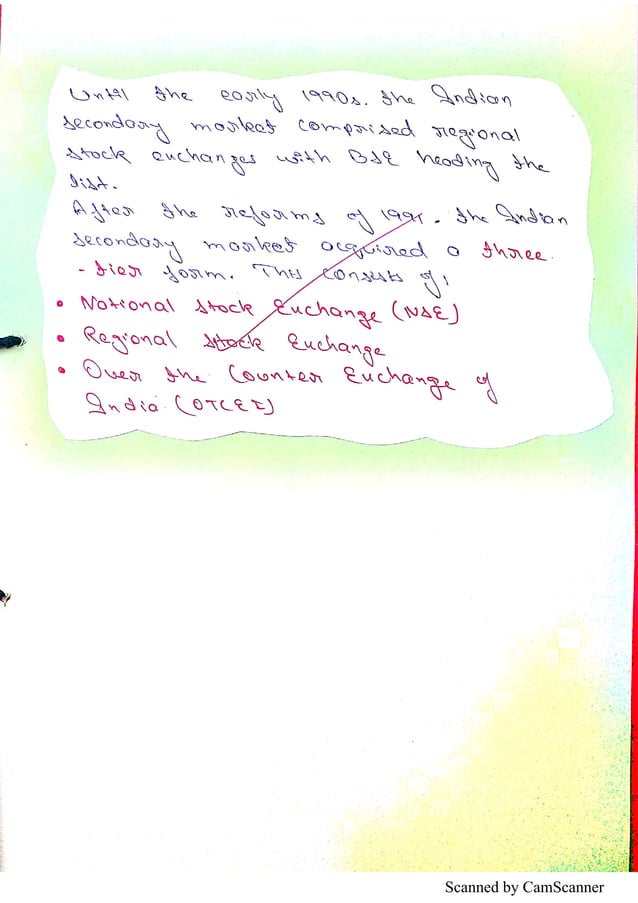 Until the early 1990s. the Indian
secondary market comprised regional
stock exchanges with BSE heading the
list.
After the reforms of 1991. the Indian
secondary market acquired a three
- tier form. This consists of;
• National Stock Exchange (NSE)
• Regional Stock Exchange
• Over the Counter Exchange of
India (OTCEI)
Scanned by CamScanner